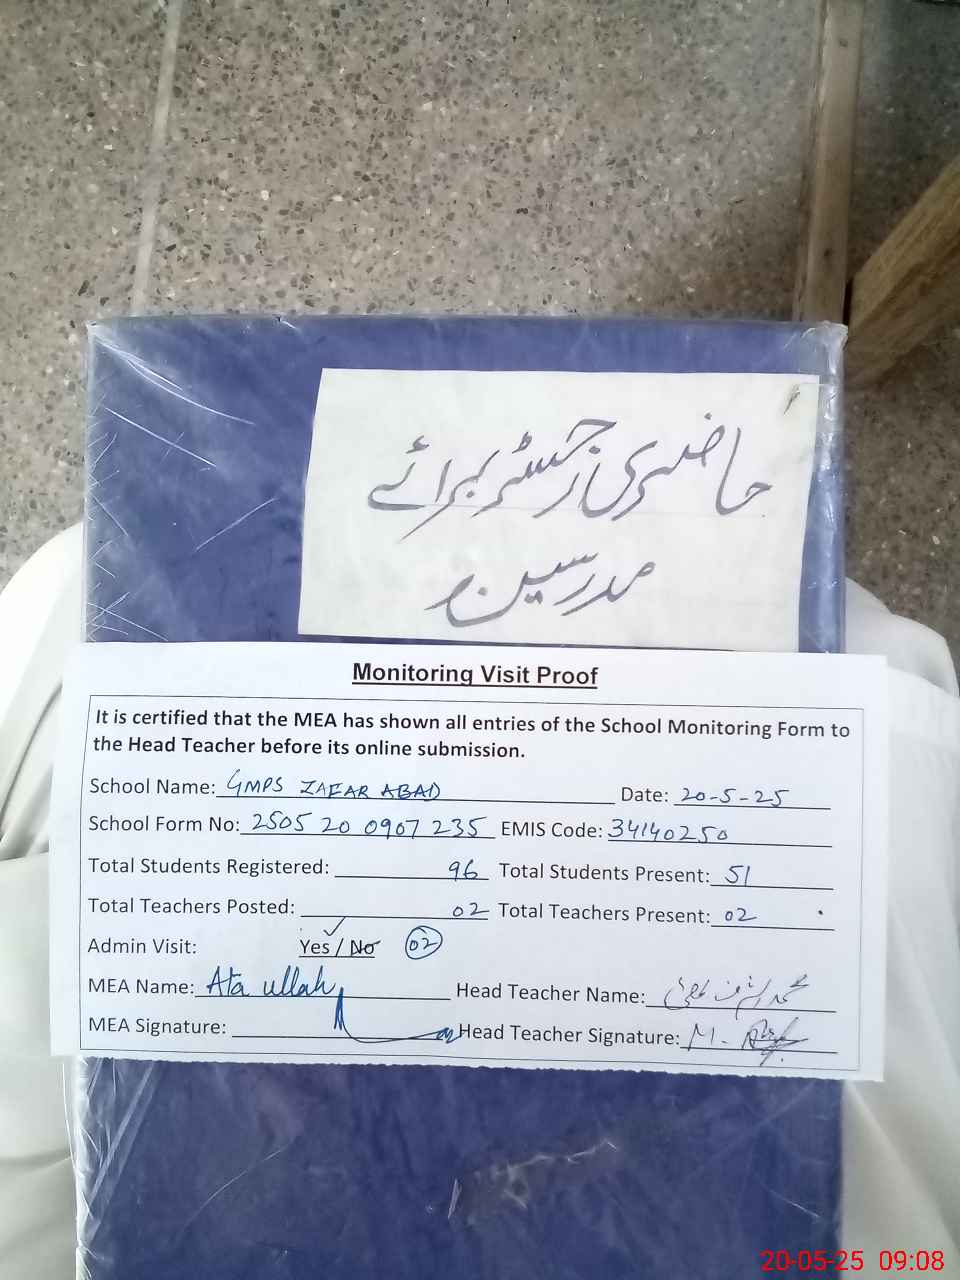 حاضری رجسٹر برائے
مدرسین
Monitoring Visit Proof
It is certified that the MEA has shown all entries of the School Monitoring Form to
the Head Teacher before its online submission.
School Name: GMPS ZAFAR ABAD Date: 20-5-25
School Form No: 2505 20 0907 235 EMIS Code: 34140250
Total Students Registered: 96 Total Students Present: 51
Total Teachers Posted: 02 Total Teachers Present: 02
Admin Visit: Yes / No 02
MEA Name: Ata ullah Head Teacher Name: محمد
MEA Signature: Head Teacher Signature: M.
20-05-25 09:08